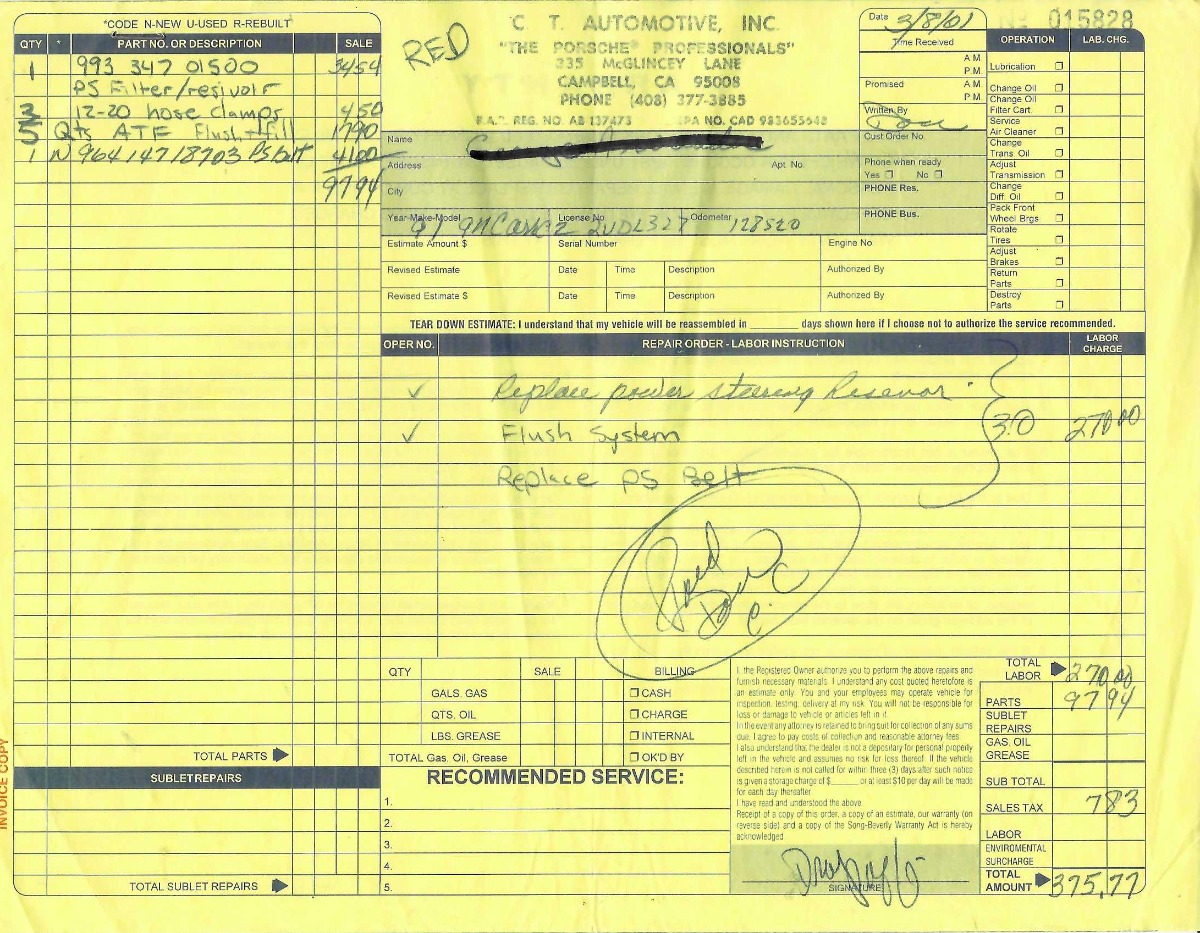 *CODE N-NEW U-USED R-REBUILT
QTY * PART NO. OR DESCRIPTION SALE
1 993 347 01500 3454
PS Filter/resivoir
2 12-20 hose clamps 450
5 Qts ATF Flush + fill 1790
1 N 964 147 18703 PS belt 4100
9794
TOTAL PARTS
SUBLET REPAIRS
TOTAL SUBLET REPAIRS
INVOICE COPY
RED
C. T. AUTOMOTIVE, INC.
"THE PORSCHE® PROFESSIONALS"
335 McGLINCEY LANE
CAMPBELL, CA 95008
PHONE (408) 377-3885
B.A.R. REG. NO. AB 137473 EPA NO. CAD 983655648
Date 3/8/01
Time Received
A.M.
P.M.
Promised A.M.
P.M.
Written By
Cust Order No.
Phone when ready
Yes No
PHONE Res.
PHONE Bus.
Nº 015828
Name
Address Apt. No.
City
Year-Make-Model 91 911 Carr 2 License No. 2UDL327 Odometer 128520
Estimate Amount $ Serial Number Engine No.
Revised Estimate Date Time Description Authorized By
Revised Estimate $ Date Time Description Authorized By
OPERATION LAB. CHG.
Lubrication
Change Oil
Change Oil
Filter Cart.
Service
Air Cleaner
Change
Trans. Oil
Adjust
Transmission
Change
Diff. Oil
Pack Front
Wheel Brgs
Rotate
Tires
Adjust
Brakes
Return
Parts
Destroy
Parts
TEAR DOWN ESTIMATE: I understand that my vehicle will be reassembled in ______ days shown here if I choose not to authorize the service recommended.
OPER NO. REPAIR ORDER - LABOR INSTRUCTION LABOR CHARGE
✓ Replace power steering Resevoir
✓ Flush System 3.0 270.00
Replace PS Belt
QTY SALE BILLING
GALS. GAS CASH
QTS. OIL CHARGE
LBS. GREASE INTERNAL
TOTAL Gas, Oil, Grease OK'D BY
RECOMMENDED SERVICE:
1.
2.
3.
4.
5.
I, the Registered Owner authorize you to perform the above repairs and
furnish necessary materials. I understand any cost quoted heretofore is
an estimate only. You and your employees may operate vehicle for
inspection, testing, delivery at my risk. You will not be responsible for
loss or damage to vehicle or articles left in it.
In the event any attorney is retained to bring suit for collection of any sums
due, I agree to pay costs of collection and reasonable attorney fees.
I also understand that the dealer is not a depositary for personal property
left in the vehicle and assumes no risk for loss thereof. If the vehicle
described herein is not called for within three (3) days after such notice
is given a storage charge of $______ or at least $10 per day will be made
for each day thereafter
I have read and understood the above.
Receipt of a copy of this order, a copy of an estimate, our warranty (on
reverse side) and a copy of the Song-Beverly Warranty Act is hereby
acknowledged
SIGNATURE
TOTAL LABOR 270.00
PARTS 97 94
SUBLET REPAIRS
GAS. OIL GREASE
SUB TOTAL
SALES TAX 783
LABOR
ENVIROMENTAL SURCHARGE
TOTAL AMOUNT 375.77